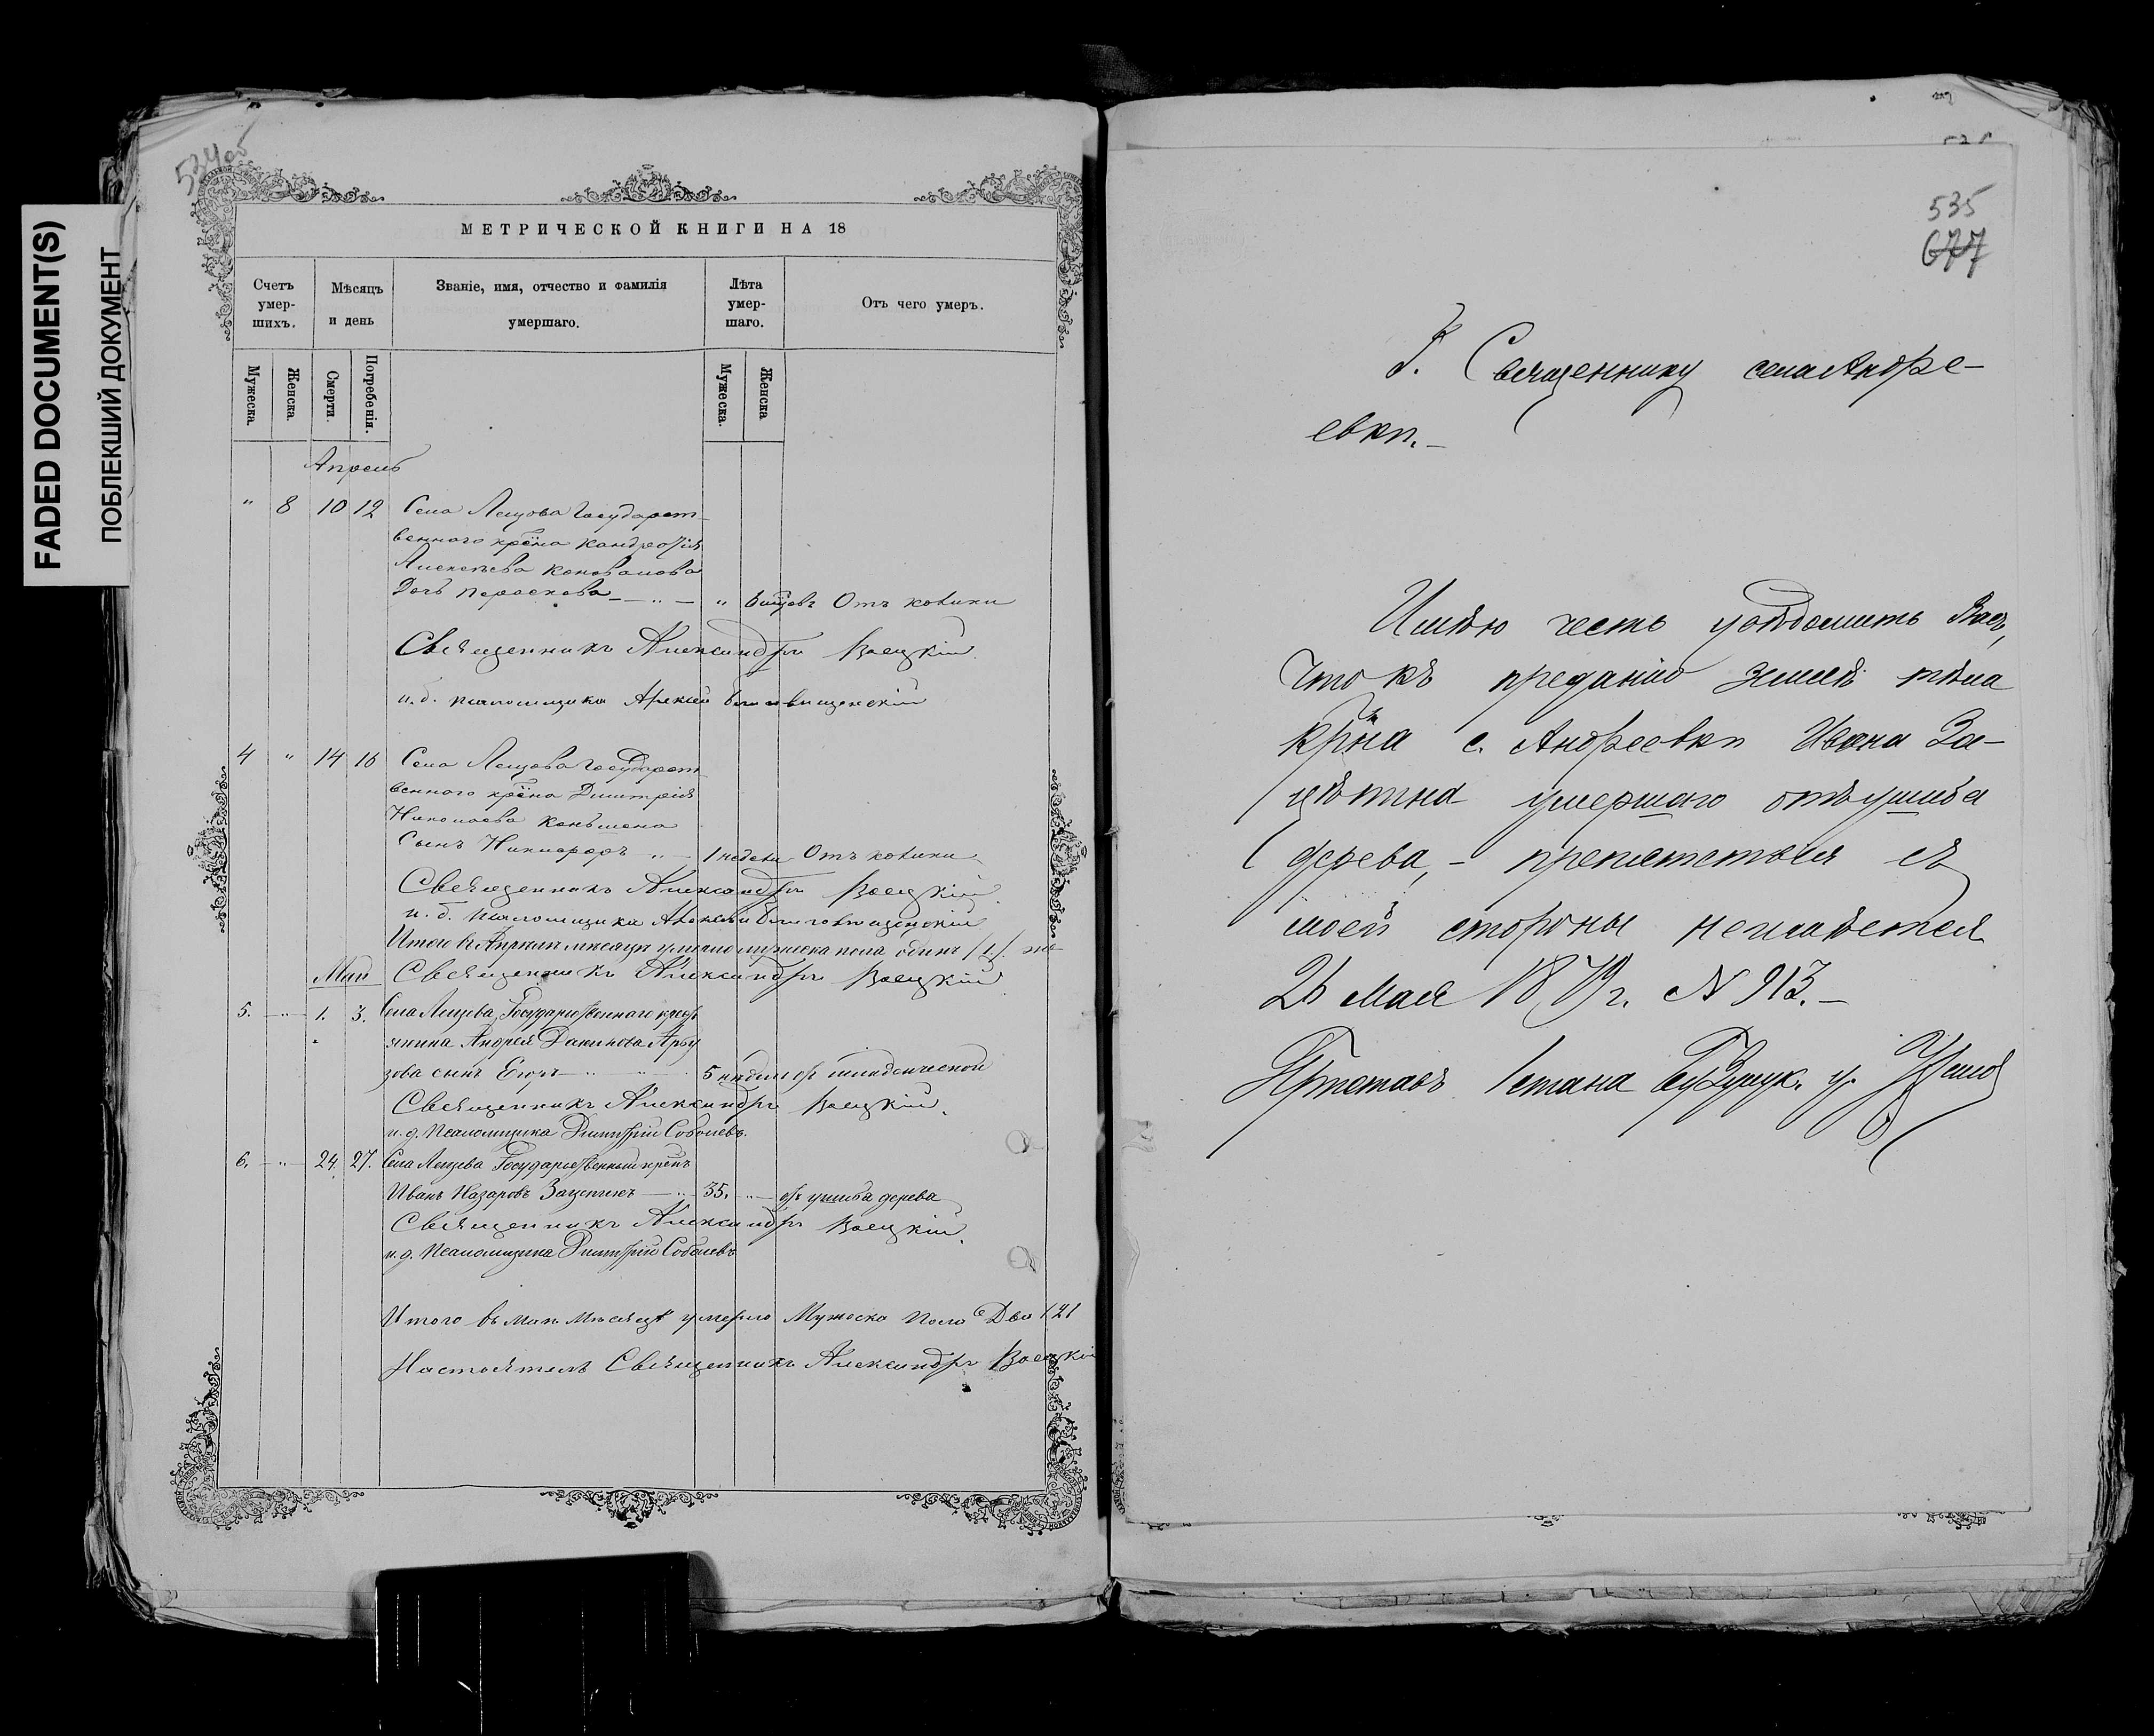 FADED DOCUMENT(S)
ПОБЛЕКШИЙ ДОКУМЕНТ
534об
МЕТРИЧЕСКОЙ КНИГИ НА 18
Счетъ умер-шихъ.
Мѣсяцъ и день
Званіе, имя, отчество и фамилія умершаго.
Лѣта умер-шаго.
Отъ чего умеръ.
Мужеска.
Женска
Смерти.
Погребенія.
Мужеска.
Женска
Апрель
" 8 10 12 Села Лещова Государст-
веннаго крсна
Алексѣева Коновалова
Дочь " Отъ
Священникъ Александръ
и.д. псаломщика Алексѣй Благовѣщенскій
4 " 14 16 Села Лещова Государст-
веннаго крсна Димитрія
Николаева
Сынъ Никифоръ 1 недели Отъ
Священникъ Александръ
и.д. псаломщика Алексѣй Благовѣщенскій
Итого въ Апрелѣ месяцѣ умерло мужеска пола одинъ /1/.
Май Священникъ Александръ
5. " 1. 3. Села Лещева, Государственнаго крест
янина Андрея
зова сынъ Егоръ 5 недел от младенческой
Священникъ Александръ
и.д. Псаломщика Димитрій Соболевъ.
6. " 24. 27. Села Лещева Государственный крснъ
Иванъ Назаровъ 35. " от ушиба дерева
Священникъ Александръ
и.д. Псаломщика Димитрій Соболевъ
Итого въ Маѣ Месяцѣ умерло Мужеска Пола Два /2/
Настоятель Священникъ Александръ
535
677
Г. Священнику села Андре-
евки.
Имѣю честь увѣдомить Васъ,
что къ преданію землѣ тѣла
крна с. Андреевки Ивана За-
умершаго отъ ушиба
дерева, - препятствія съ
моей стороны неимѣется
26 Мая 1879 г. N 913.
Приставъ 1 стана Бузулук. у.